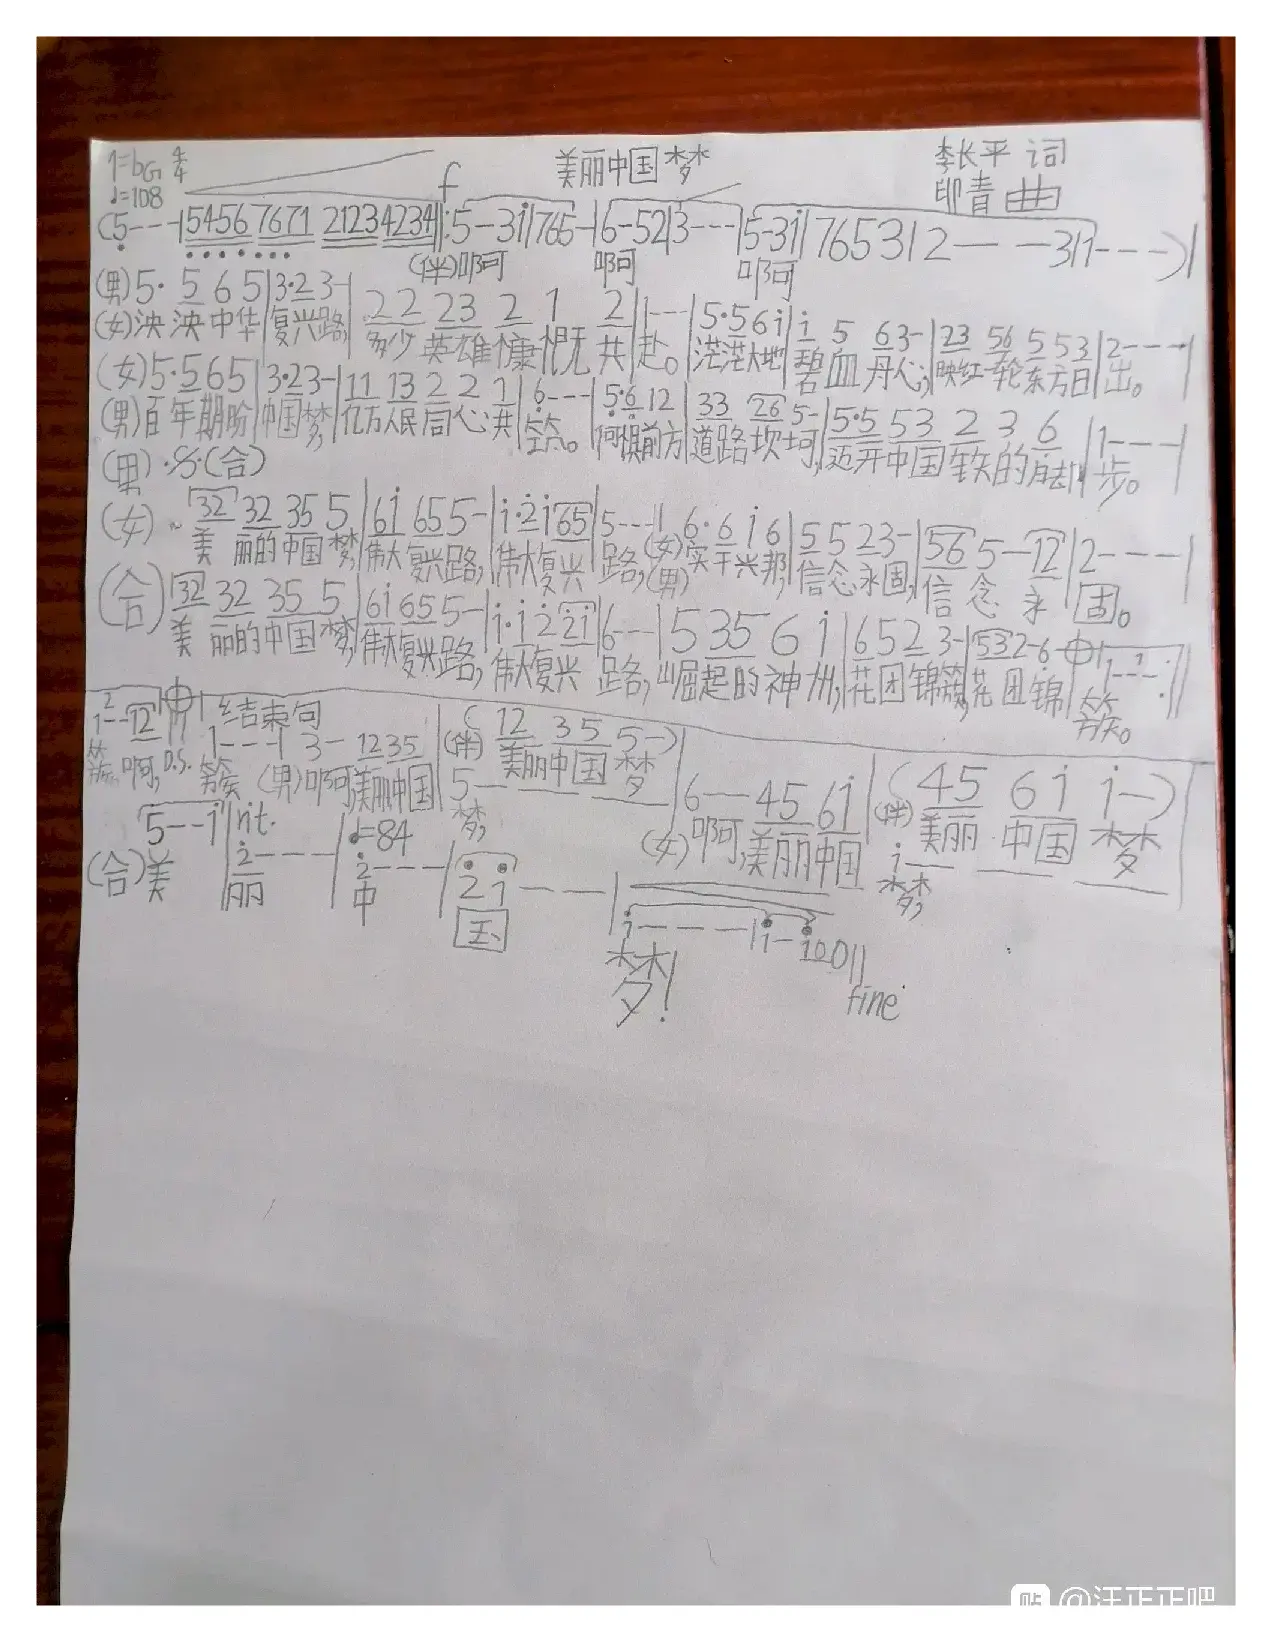 1=bG 4/4 美丽中国梦 李长平 词
♩=108 f 印青 曲
(5---|5456 7671 2123 4234‖:5-31|765-|6-52|3---|5-31|76531|2---31|1---)|
(伴)啊 啊 啊
(男)5· 5 6 5|3·2 3-|22 23 2 1 2|1---|5·5 6 i|i 5 63-|23 56 5 53|2---|
(女)泱泱中华|复兴路,|多少英雄慷慨共|赴。|茫茫大地|碧血丹心,|映红一轮东方日|出。|
(女)5·565|3·23-|11 13 2 2 1|6---|5·6 12|33 26 5-|5·5 53 2 3 6|1---|
(男)百年期盼|中国梦,|亿万人民同心共|筑。|何惧前方|道路坎坷,|迈开中国铁的脚|步。
(男)·S·(合)
(女) 32 32 35 5|6i 65 5-|i·2i65|5---|6·6 i 6|5 5 23-|56 5-12|2---|
美丽的中国梦,|伟大复兴路,|伟大复兴|路,|(女)(男)实干兴邦,|信念永固,|信念永|固。
(合)32 32 35 5|6i 65 5-|i·i 2 2i|6---|5 35 6 i|6523-|532-6|1---:‖
美丽的中国梦,|伟大复兴路,|伟大复兴|路,|崛起的神州,|花团锦簇,|花团锦|簇。
2 1--12 结束句
1---|3- 1235|(伴)(12 35 5-)|6--45 6i|(伴)(45 6i i-)
簇。啊, D.S. 簇 (男)啊,美丽中国 美丽中国梦
5- 梦, (女)啊,美丽中国 美丽中国梦
i- 梦,
5--i|rit. 2---|♩=84 2---|2i---|i---|i-i00‖
(合)美|丽|中|国|梦!
fine
@汪正正吧